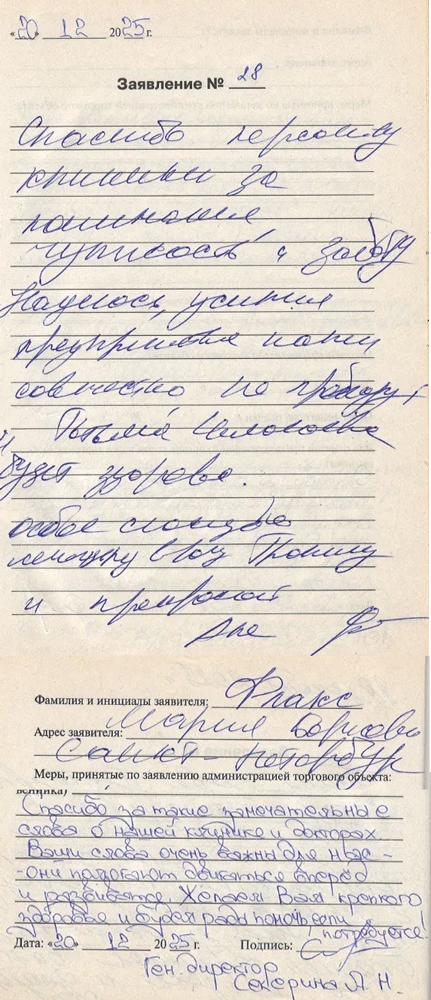 «20» 12 2025 г.
Заявление № 28
Спасибо персоналу
клиники за
понимание,
чуткость и заботу
Надеюсь, усилия
предпринятые нами
совместно не пропадут
и
будет здорова.
особое спасибо
лечащему врачу
и прекрасной
Фамилия и инициалы заявителя: Флакс
Адрес заявителя: Мария Борисовна
Санкт-Петербург
Меры, принятые по заявлению администрацией торгового объекта:
венника)
Спасибо за такие замечательные
слова о нашей клинике и докторах
Ваши слова очень важны для нас -
- они помогают двигаться вперёд
и развиваться. Желаем Вам крепкого
здоровья и будем рады помочь если
потребуется!
Дата: «20» 12 2025 г. Подпись:
Ген. директор
Я. Н.